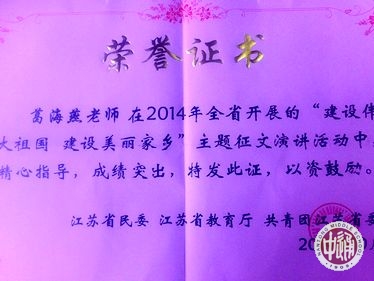 荣誉证书
葛海燕老师 在2014年全省开展的“建设伟
大祖国 建设美丽家乡”主题征文演讲活动中
精心指导，成绩突出，特发此证，以资鼓励。
江苏省民委 江苏省教育厅 共青团江苏省委
中通
NANTONG MIDDLE SCHOOL
1909